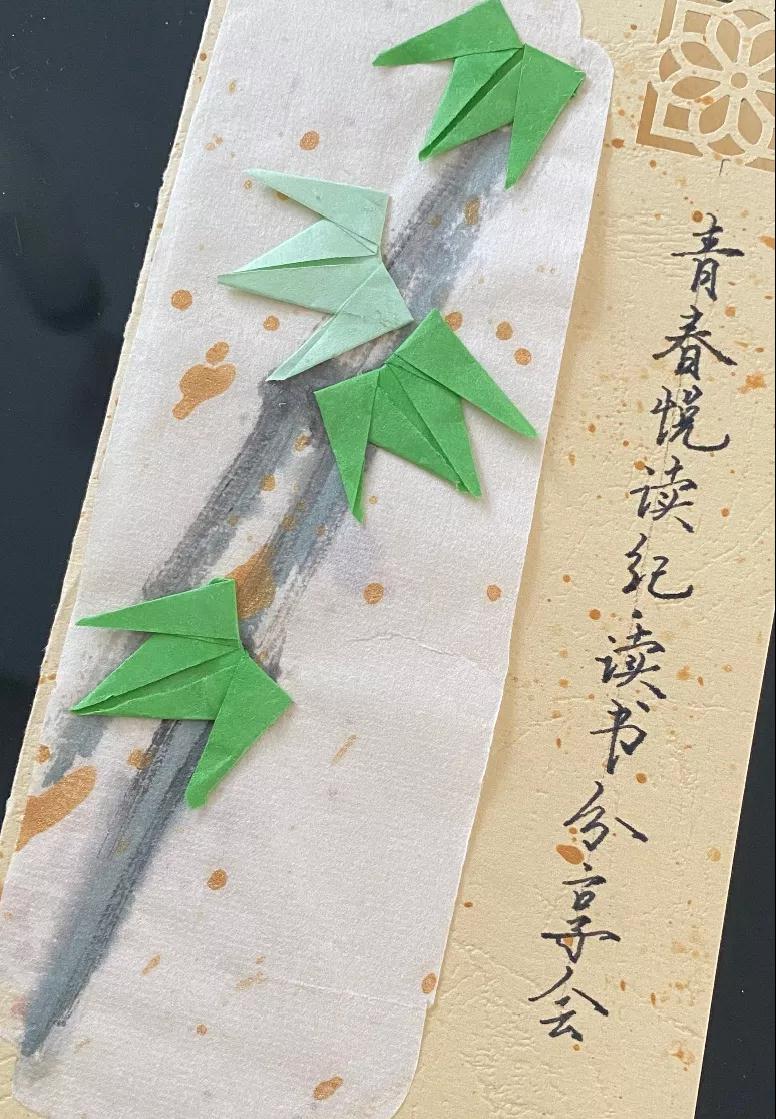 青春悦读纪·读书分享会